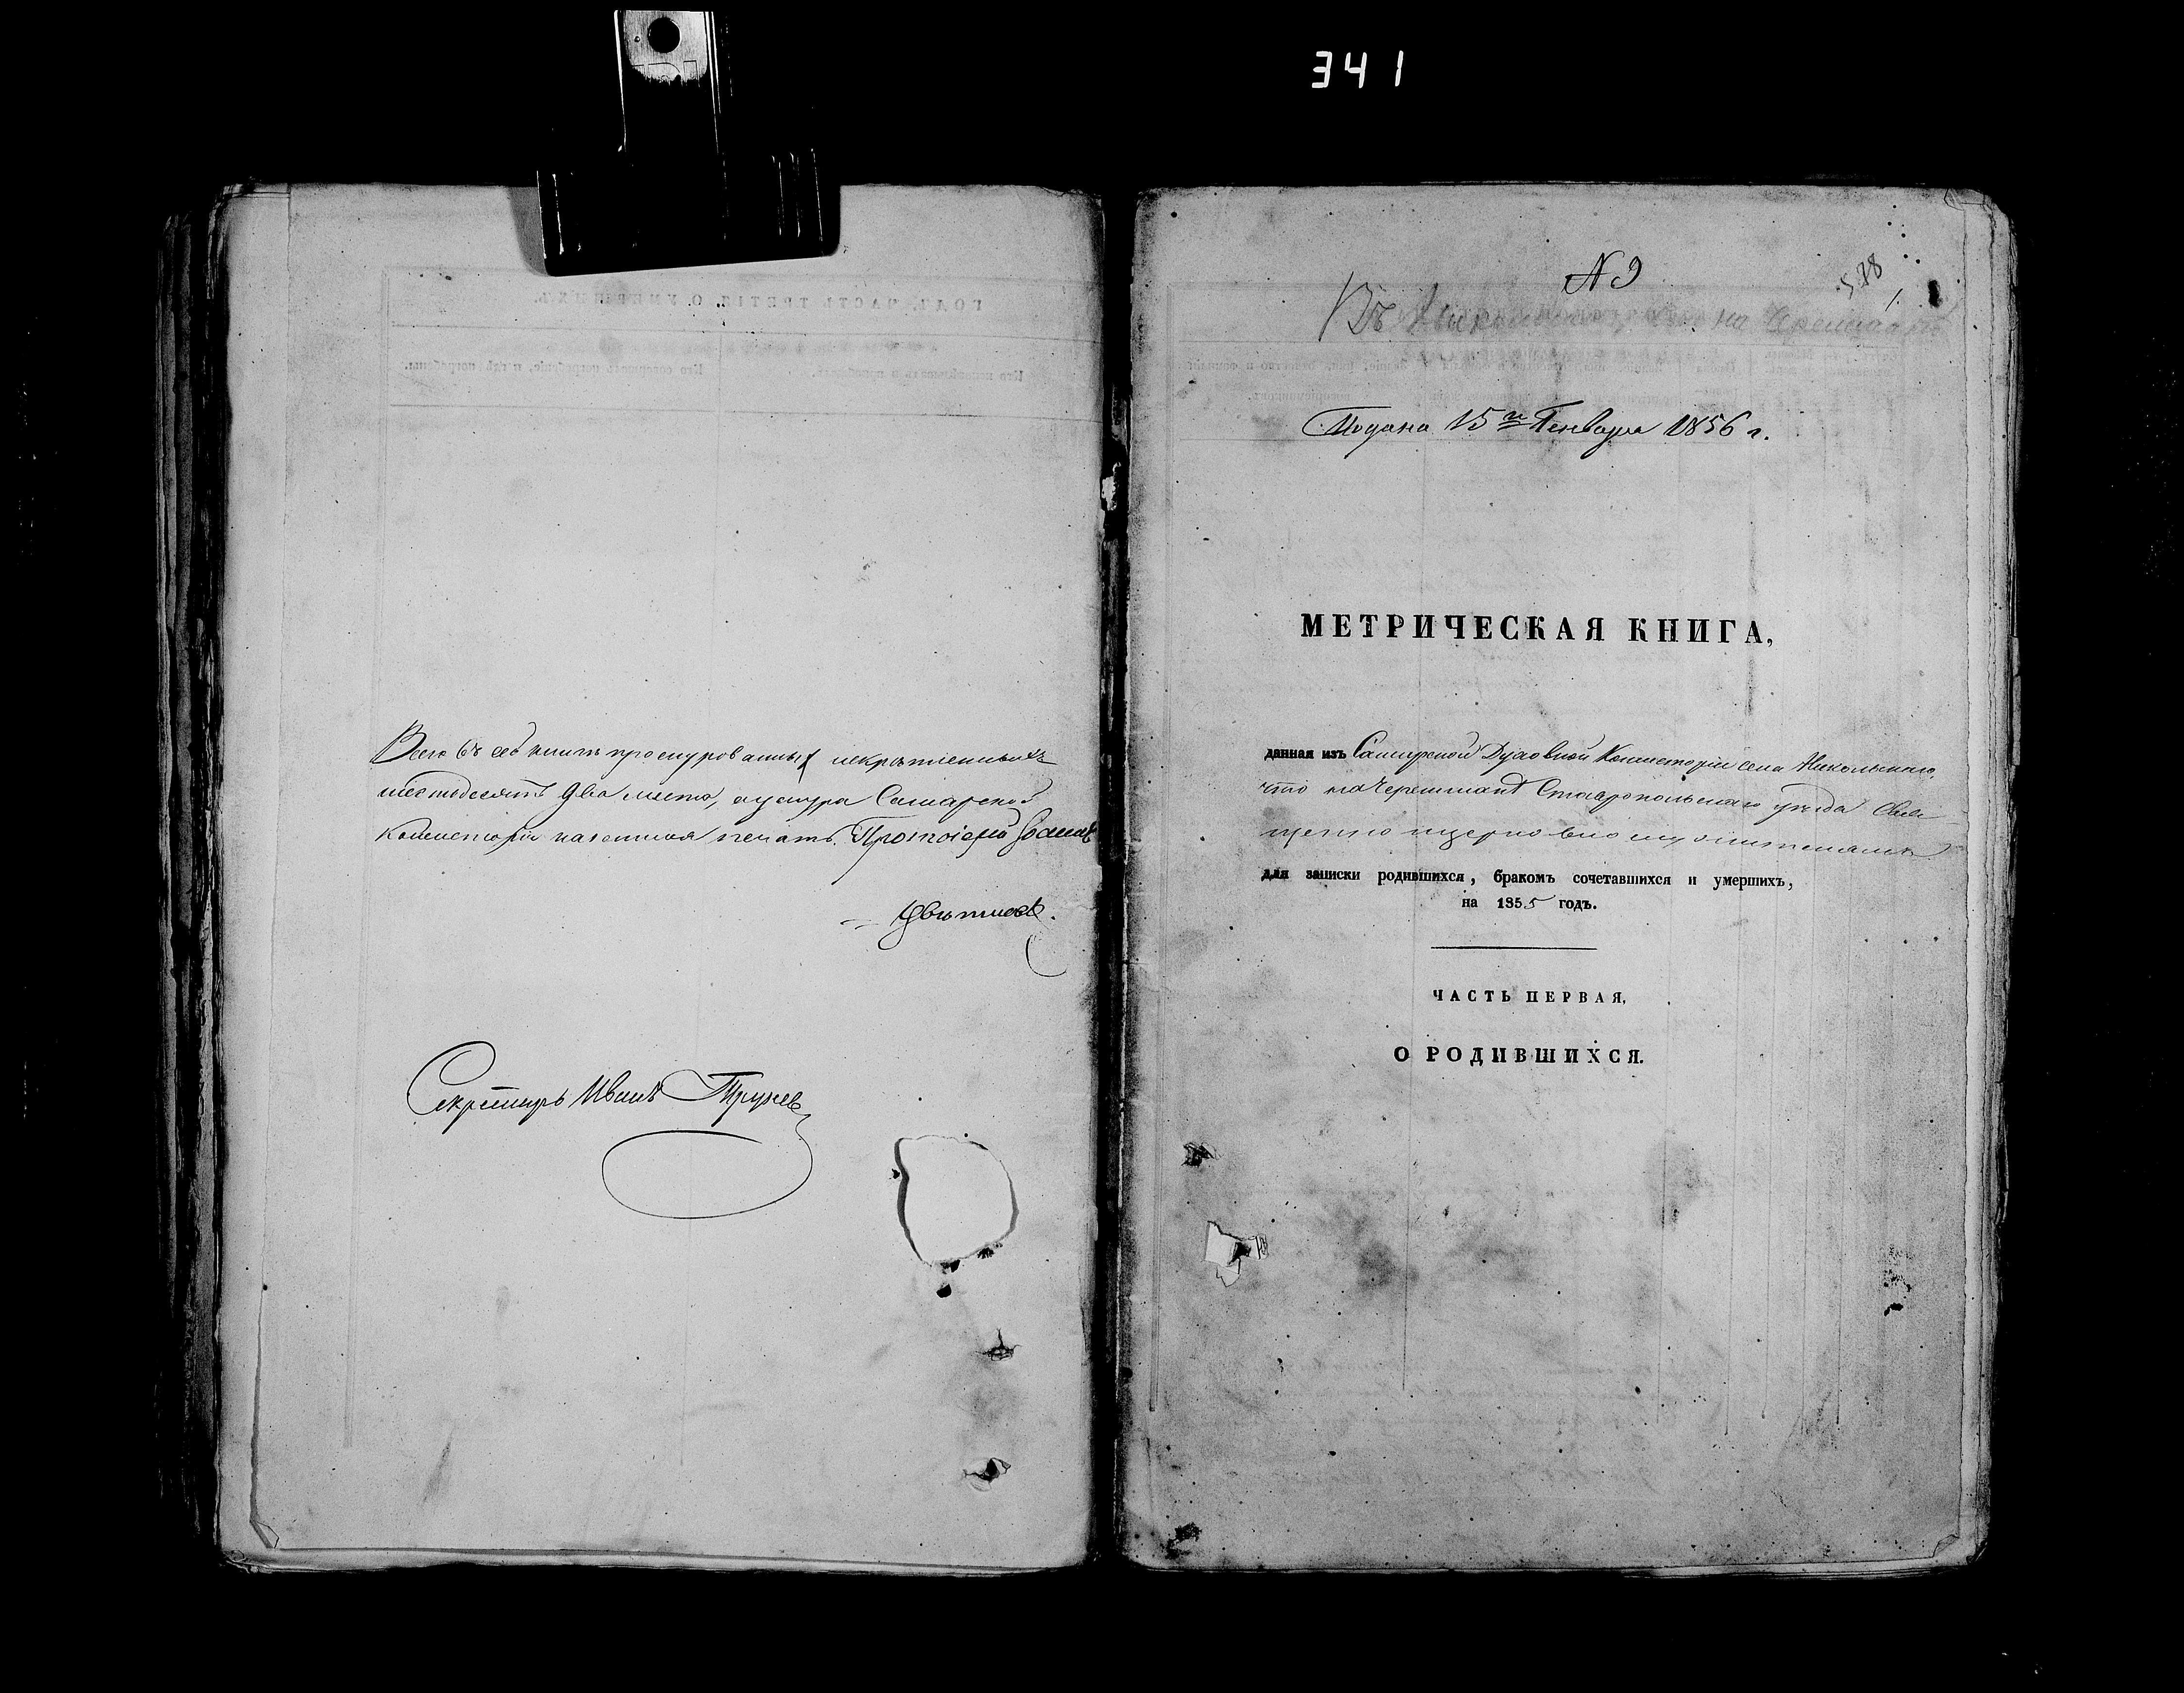 341
Всего въ сей книгѣ прошнурованныхъ и скрѣпленныхъ
шестьдесятъ два листа, а у шнура Самарской
Консисторіи казенная печать. Протоіерей Іоаннъ
Цвѣтковъ.
Секретарь Иванъ
N 9
578
1.
Въ на Черемшанѣ
Подана 15го Генваря 1856 г.
МЕТРИЧЕСКАЯ КНИГА,
данная изъ Самарской Духовной Консисторіи села Никольскаго,
что на Черемшанѣ Ставропольскаго уѣзда Свя-
щенно церковно служителямъ
для записки родившихся, бракомъ сочетавшихся и умершихъ,
на 1855 годъ.
ЧАСТЬ ПЕРВАЯ,
О РОДИВШИХСЯ.